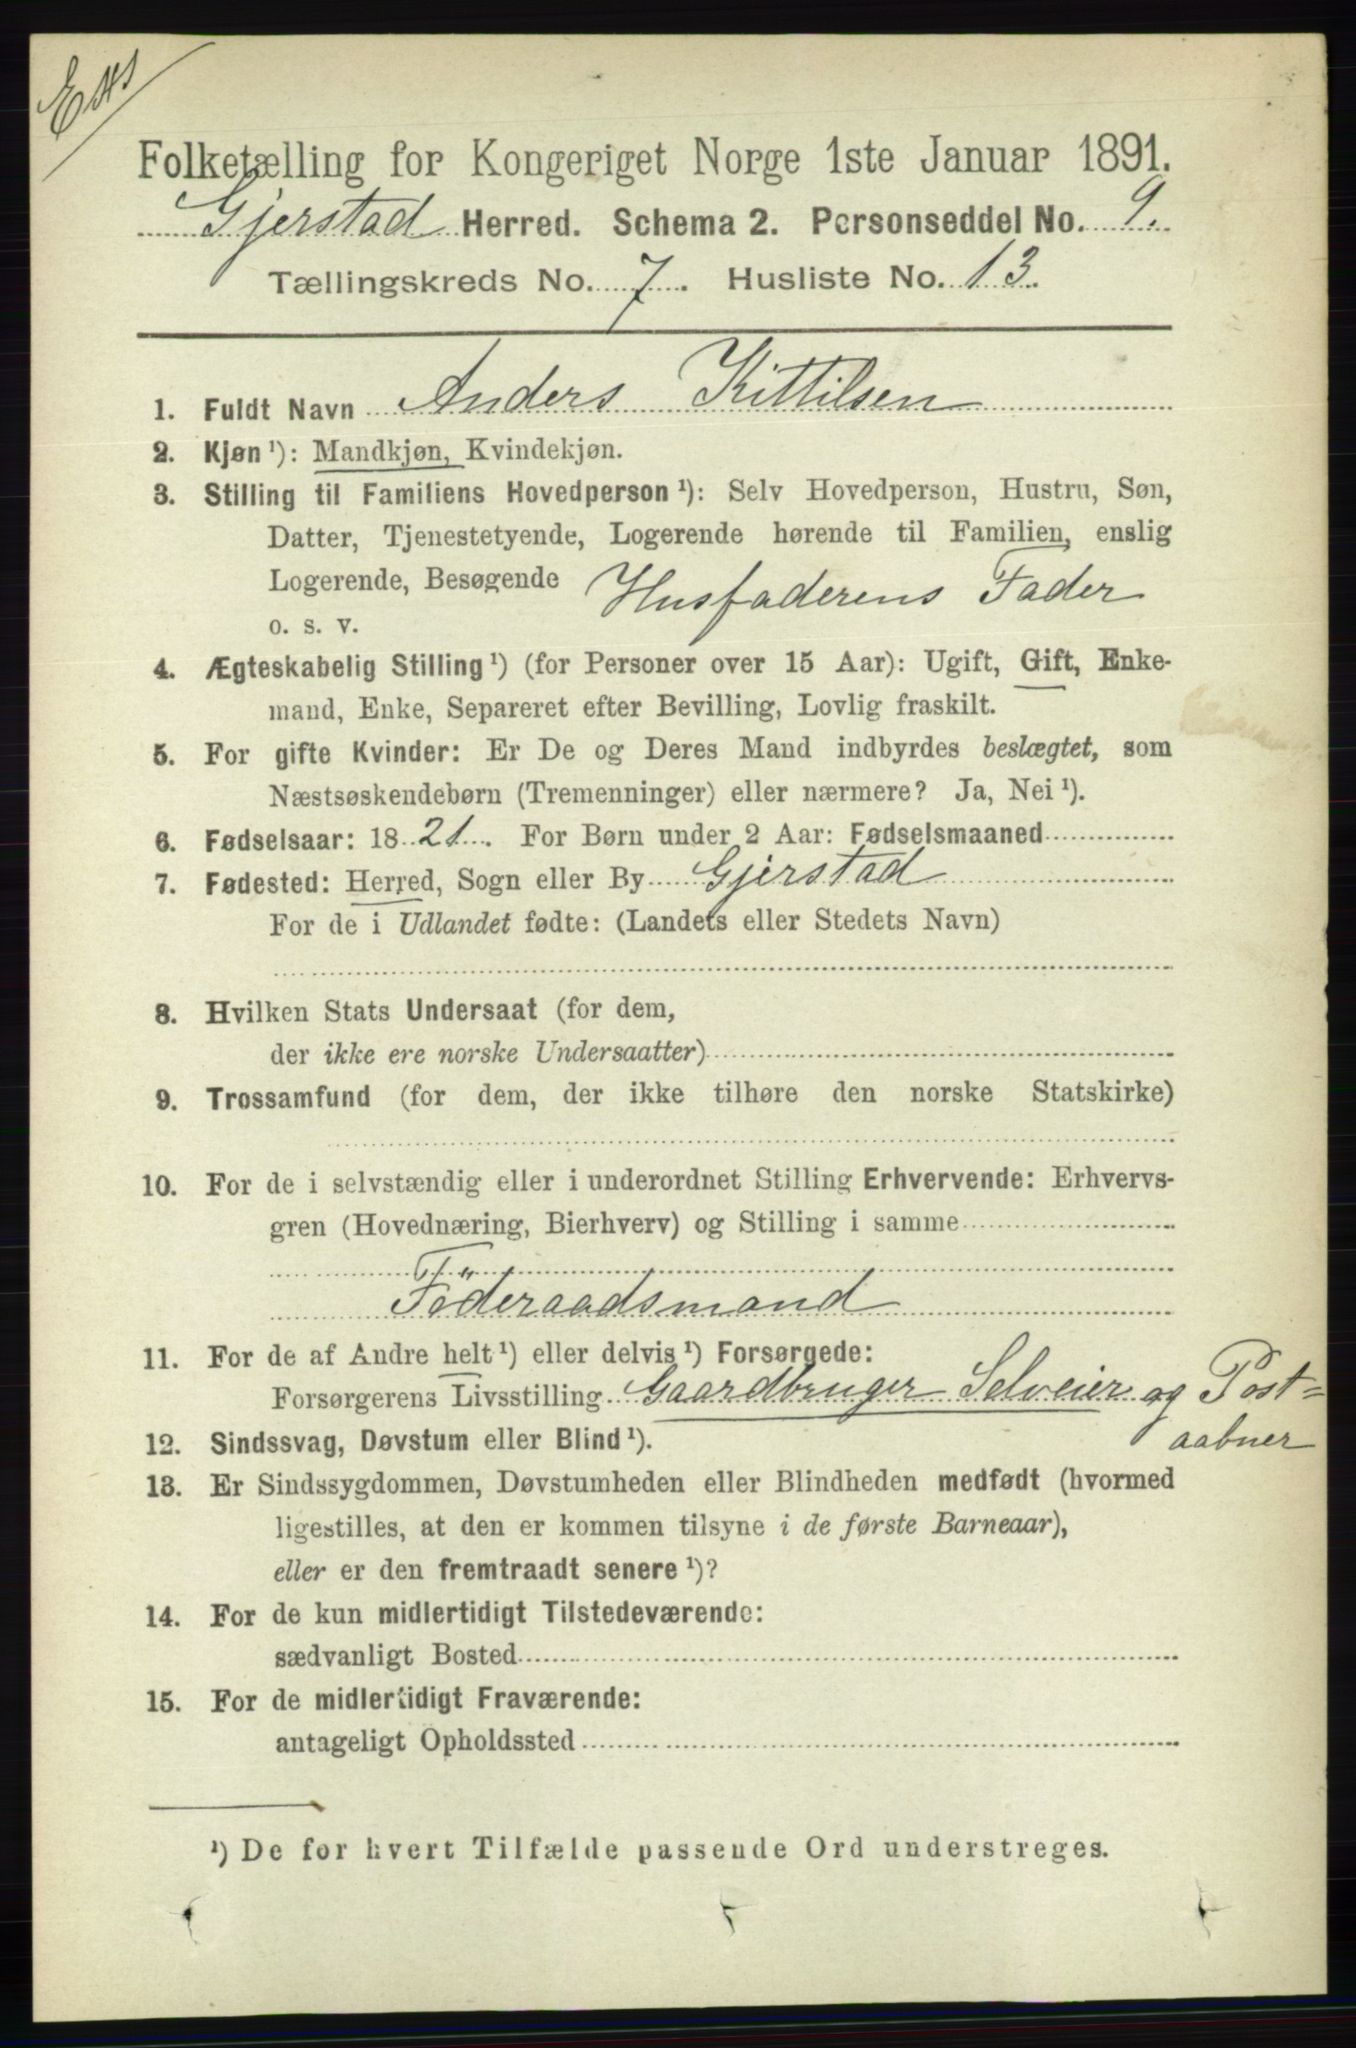 Folketælling for Kongeriget Norge 1ste Januar 1891.
Gjerstad Herred. Schema 2. Personseddel No. 9.
Tællingskreds No. 7. Husliste No. 13.
1. Fuldt Navn Anders Kittilsen
2. Kjøn ¹): Mandkjøn, Kvindekjøn.
3. Stilling til Familiens Hovedperson ¹): Selv Hovedperson, Hustru, Søn,
Datter, Tjenestetyende, Logerende hørende til Familien, enslig
Logerende, Besøgende Husfaderens Fader
o. s. v.
4. Ægteskabelig Stilling ¹) (for Personer over 15 Aar): Ugift, Gift, Enke-
mand, Enke, Separeret efter Bevilling, Lovlig fraskilt.
5. For gifte Kvinder: Er De og Deres Mand indbyrdes beslægtet, som
Næstsøskendebørn (Tremenninger) eller nærmere? Ja, Nei ¹).
6. Fødselsaar: 1821. For Børn under 2 Aar: Fødselsmaaned
7. Fødested: Herred, Sogn eller By Gjerstad
For de i Udlandet fødte: (Landets eller Stedets Navn)
8. Hvilken Stats Undersaat (for dem,
der ikke ere norske Undersaatter)
9. Trossamfund (for dem, der ikke tilhøre den norske Statskirke)
10. For de i selvstændig eller i underordnet Stilling Erhvervende: Erhvervs-
gren (Hovednæring, Bierhverv) og Stilling i samme
Föderaadsmand
11. For de af Andre helt ¹) eller delvis ¹) Forsørgede:
Forsørgerens Livsstilling Gaardbruger Selveier og Post=
aabner
12. Sindssvag, Døvstum eller Blind ¹).
13. Er Sindssygdommen, Døvstumheden eller Blindheden medfødt (hvormed
ligestilles, at den er kommen tilsyne i de første Barneaar),
eller er den fremtraadt senere ¹)?
14. For de kun midlertidigt Tilstedeværende:
sædvanligt Bosted
15. For de midlertidigt Fraværende:
antageligt Opholdssted
¹) De for hvert Tilfælde passende Ord understreges.